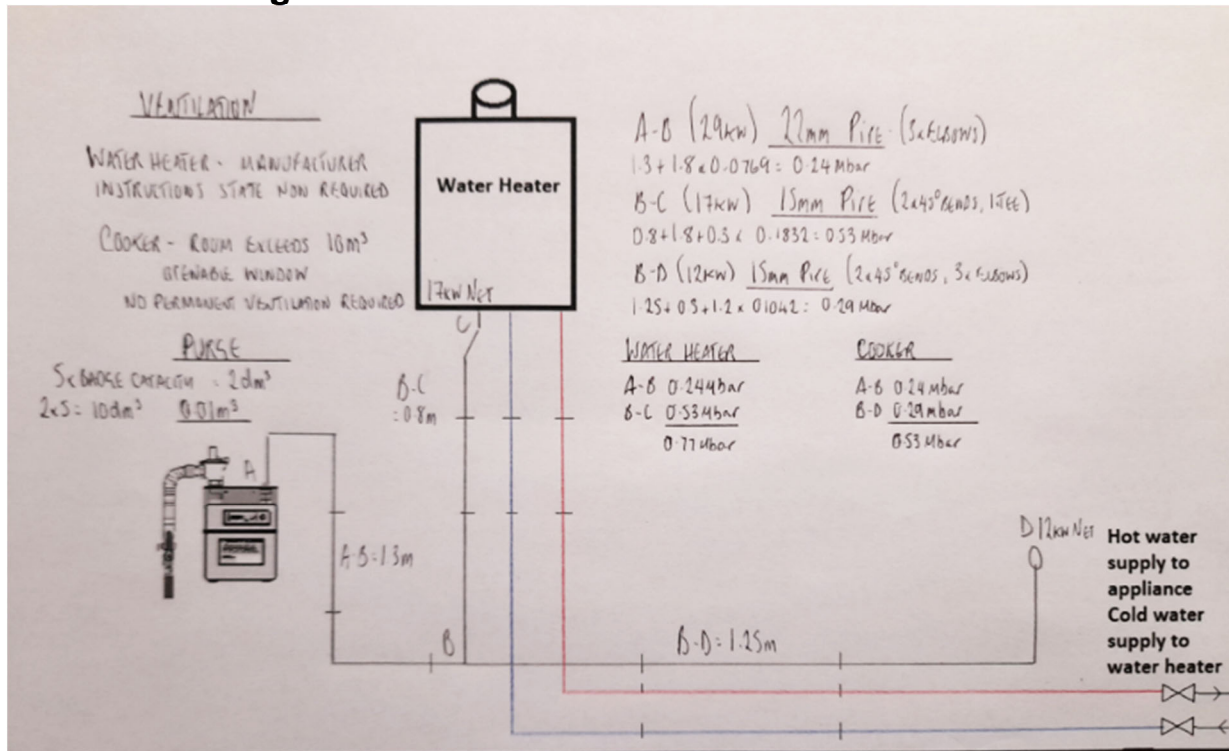 VENTILATION
WATER HEATER - MANUFACTURER
INSTRUCTIONS STATE NON REQUIRED
COOKER - ROOM EXCEEDS 10m³
OPENABLE WINDOW
NO PERMANENT VENTILATION REQUIRED
PURGE
5x BADGE CAPACITY = 2dm³
2x5 = 10dm³ 0.01m³
Water Heater
17KW NET
C
B-C
= 0.8m
A
A-B = 1.3m
B
B-D = 1.25m
D 12KW NET
A-B (29KW) 22mm PIPE (3x ELBOWS)
1.3 + 1.8 x 0.0769 = 0.24 Mbar
B-C (17KW) 15mm PIPE (2x45° BENDS, 1TEE)
0.8 + 1.8 + 0.3 x 0.1832 = 0.53 Mbar
B-D (12KW) 15mm PIPE (2x45° BENDS, 3x ELBOWS)
1.25 + 0.3 + 1.2 x 0.1042 = 0.29 Mbar
WATER HEATER
A-B 0.24 Mbar
B-C 0.53 Mbar
0.77 Mbar
COOKER
A-B 0.24 Mbar
B-D 0.29 Mbar
0.53 Mbar
Hot water
supply to
appliance
Cold water
supply to
water heater